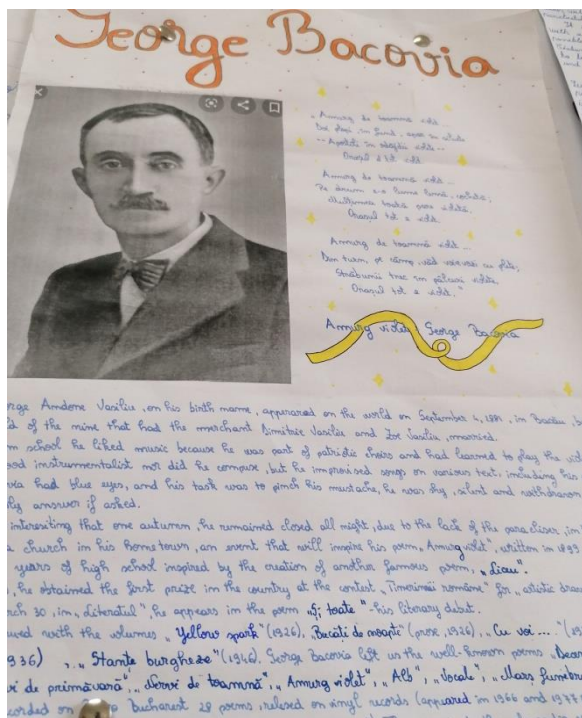 George Bacovia
„Amurg de toamnă violet
Doi plopi, în fund, apar în siluete
-- Apostoli în odăjdii violete --
Orașul e tot violet.
Amurg de toamnă violet ...
Pe drum e-o lume leneșă, cochetă;
Mulțimea toată pare violetă,
Orașul tot e violet.
Amurg de toamnă violet ...
Din turn, pe câmp, văd voievozi cu plete;
Străbunii trec în pâlcuri violete,
Orașul tot e violet."
Amurg violet George Bacovia
orge Andone Vasiliu, on his birth name, appeared on the world on September 4, 1881, in Bacău,
of the nine that had the merchant Dimitrie Vasiliu and Zoe Vasiliu, married.
school he liked music because he was part of patriotic choirs and had learned to play the
instrumentalist nor did he compose, but he improvised songs on various text, including his
had blue eyes, and his task was to pinch his mustache, he was shy, silent and withdrawn
answer if asked.
interesiting that one autumn, he remained closed all night, due to the lack of the paracliser, in
church in his hometown, an event that will inspire his poem, „Amurg violet", written in 1899
years of high school inspired by the creation of another famous poem, „Liceu".
, he obtained the first prize in the country at the contest „Tinerimii române" for „artistic
rch 30, in „Literatul", he appears in the poem „Și toate" - his literary debut.
with the volumes „Yellow spark" (1926), „Bucăți de noapte" (prose, 1926), „Cu voi ..."
936) , „Stanțe burgheze" (1946). George Bacovia left us the well-known poems
de primăvară", „Nervi de toamnă", „Amurg violet", „Alb", „Vocale", „Marș funebru
corded on Bucharest 28 poems, relised on vinyl records (appeared in 1966 and 1977